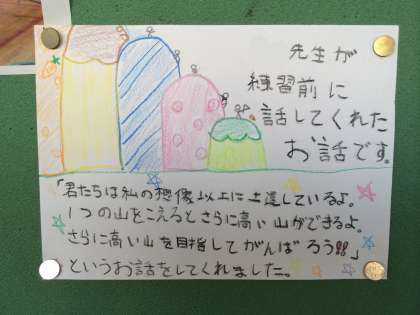 先生が
練習前に
話してくれた
お話です。
「君たちは私の想像以上に上達しているよ。
1つの山をこえるとさらに高い山ができるよ。
さらに高い山を目指してがんばろう!!」
というお話をしてくれました。